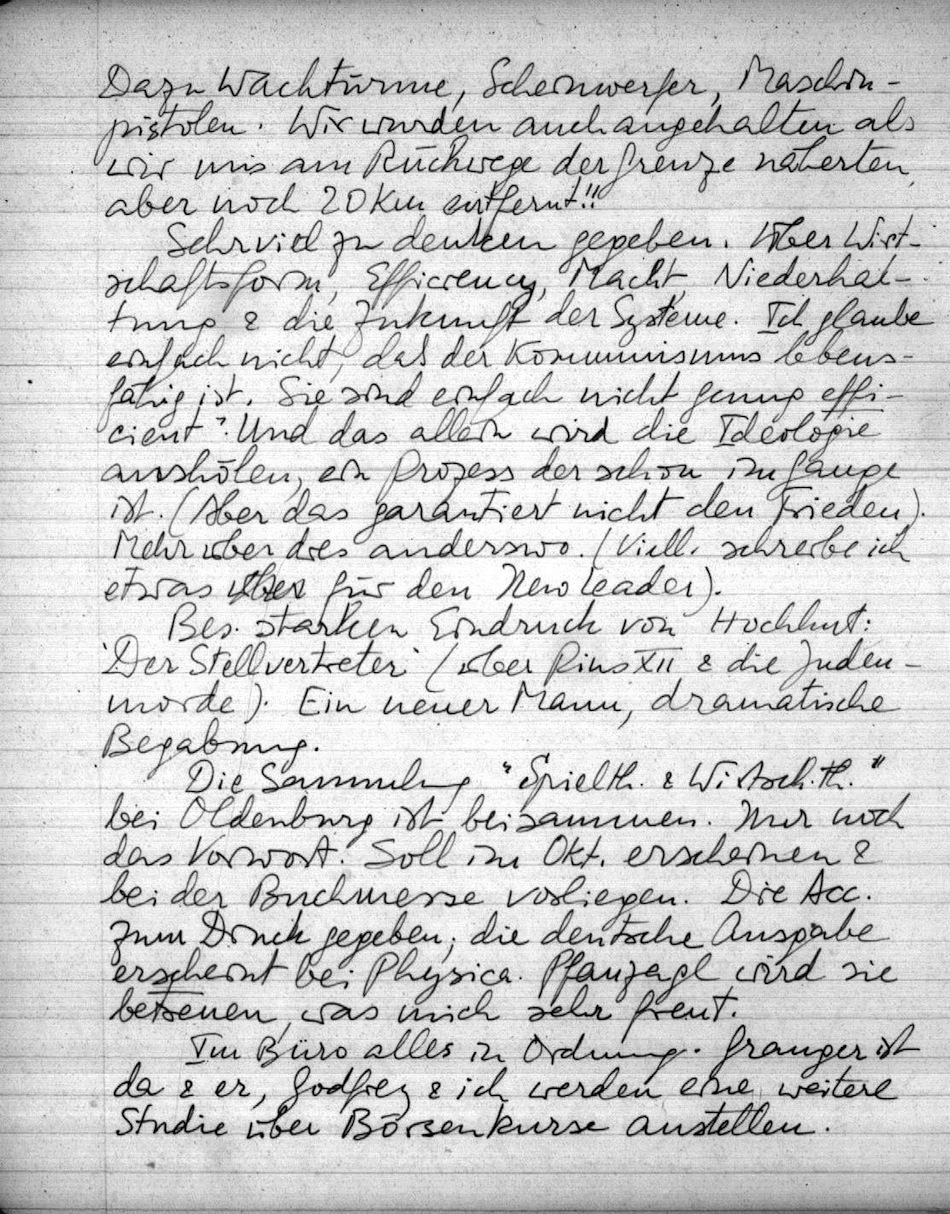 Dazu Wachtürme, Scheinwerfer, Maschin-
pistolen. Wir wurden auch angehalten als
wir uns am Rückwege der Grenze näherten,
aber noch 20 Km entfernt!!
Sehr viel zu denken gegeben. Über Wirt-
schaftsform, Efficiency, Macht, Niederhal-
tung & die Zukunft der Systeme. Ich glaube
einfach nicht, daß der Kommunismus lebens-
fähig ist. Sie sind einfach nicht genug "effi-
cient". Und das allein wird die Ideologie
aushölen, ein Prozess der schon im Gange
ist. (Aber das garantiert nicht den Frieden).
Mehr über dies anderswo. (Viell. schreibe ich
etwas für den New Leader).
Bes. starken Eindruck von Hochhut:
'Der Stellvertreter' (über Pius XII & die Juden-
morde). Ein neuer Mann, dramatische
Begabung.
Die Sammlung "Spielth. & Wirtsch.th."
bei Oldenburg ist beisammen. Nur noch
das Vorwort. Soll im Okt. erscheinen &
bei der Buchmesse vorliegen. Die Acc.
zum Druck gegeben; die deutsche Ausgabe
erscheint bei Physica. Pfanzagl wird sie
betreuen, was mich sehr freut.
Im Büro alles in Ordnung. Granger ist
da & er, Godfrey & ich werden eine weitere
Studie über Börsenkurse anstellen.